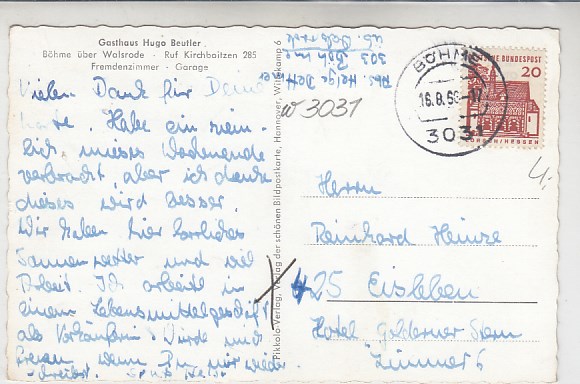 Gasthaus Hugo Beutler
Böhme über Walsrode - Ruf Kirchboitzen 285
Fremdenzimmer - Garage
Vielen Dank für Deine
Karte. Habe ein ziem-
lich mieses Wochenende
verbracht, aber ich denke
dieses wird besser.
Wir haben hier herrliches
Sonnenwetter und viel
Arbeit. Ich arbeite in
einem Lebensmittelgeschäft
als Verkäuferin. Würde mich
freuen, wenn Du mir wieder
schreibst.
Pikkolo-Verlag, Verlag der schönen Bildpostkarte, Hannover, Wißkamp 6
Abs. Helga
303 Böhme
w 3031
BÖHME
16.8.66-17
3031
DEUTSCHE BUNDESPOST
20
LORSCH/HESSEN
4,-
Herrn
Reinhard Heinze
425 Eisleben
Hotel "Goldener Stern"
Zimmer 6